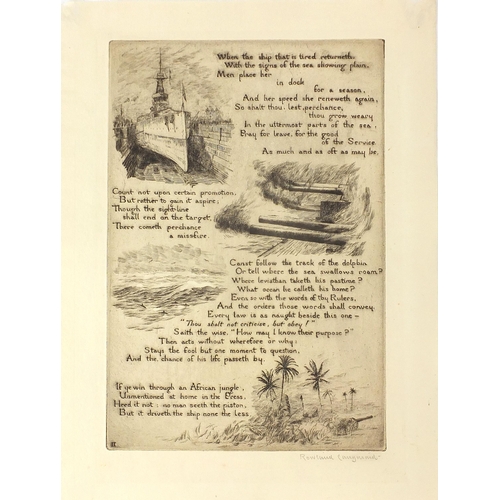 When the ship that is tired returneth,
With the signs of the sea showing plain,
Men place her
in dock
for a season,
And her speed she reneweth again.
So shalt thou, lest, perchance,
thou grow weary
In the uttermost parts of the sea,
Pray for leave, for the good
of the Service
As much and as oft as may be.
Count not upon certain promotion,
But rather to gain it aspire;
Though the sight-line
shall end on the target,
There cometh perchance
a missfire.
Canst follow the track of the dolphin
Or tell where the sea swallows roam?
Where leviathan taketh his pastime?
What ocean he calleth his home?
Even so with the words of thy Rulers,
And the orders those words shall convey.
Every law is as naught beside this one—
"Thou shalt not criticise, but obey!"
Saith the wise, "How may I know their purpose?"
Then acts without wherefore or why:
Stays the fool but one moment to question,
And the chance of his life passeth by.
If ye win through an African jungle,
Unmentioned at home in the Press,
Heed it not: no man seeth the piston,
But it driveth the ship none the less.
Rowland Langmaid